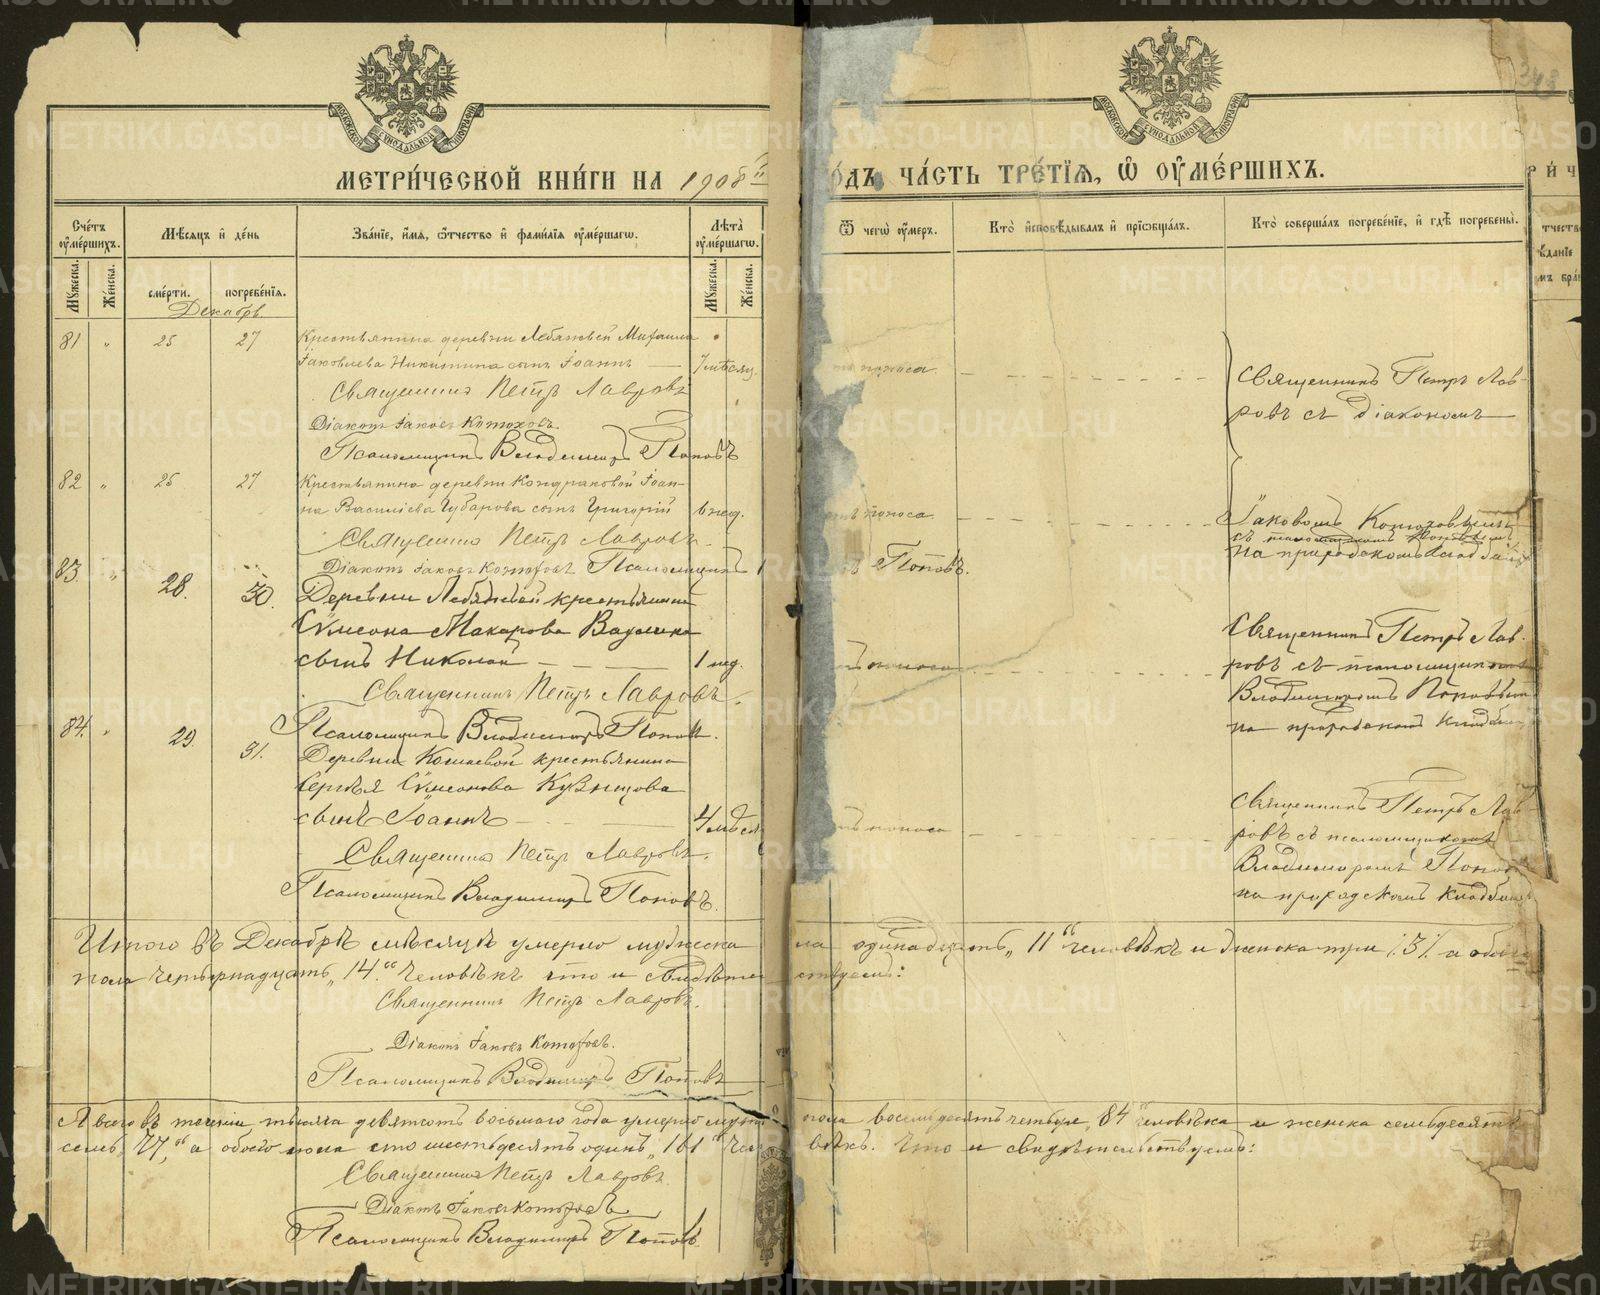 МЕТРИ́ЧЕСКОЙ КНИ́ГИ НА 1908
ОДЪ ЧА́СТЬ ТРЕ́ТІѦ, Ѡ ОУМЕ́РШИХЪ.
Сче́тъ оуме́ршихъ.
Мѣ́сяцъ и де́нь
Зва́ніе, и́мя, ѻтчество и фами́лія оуме́ршагѡ.
Лѣ́та оуме́ршагѡ.
Ѿ чегѡ̀ оу́меръ.
Кто̀ исповѣ́дывалъ и пріѡбща́лъ.
Кто̀ соверша́лъ погребе́ніе, и гдѣ̀ погребены̀.
Мꙋжеска.
Же́нска.
сме́рти.
погребе́нія.
Мꙋжеска.
Же́нска.
Декабрь
81 " 25 27 Крестьянина деревни Лебяжьей Михаила
Іаковлева Никитина сынъ Іоаннъ 7 мѣсяц. поноса.
Священникъ Петръ Лавровъ
Діаконъ Іаковъ Котюховъ.
Псаломщикъ Владимиръ Поповъ
Священникъ Петръ Лав-
ровъ съ діакономъ
82 " 25 27 Крестьянина деревни Кондраковой Іоан-
на Василіева Губарова сынъ Григорій 6 нед. поноса
Священникъ Петръ Лавровъ.
Діаконъ Іаковъ Котюховъ Псаломщикъ Поповъ.
Іаковомъ Котюховымъ
на приходскомъ кладбищѣ
83 " 28. 30. Деревни Лебяжьей крестьянина
Сѵмеона Макарова сынъ Николай 1 нед. поноса
Священникъ Петръ Лавровъ.
Псаломщикъ Владимиръ Поповъ.
Священникъ Петръ Лав-
ровъ съ псаломщикомъ
Владимиромъ Поповымъ
на приходскомъ кладбищѣ
84. " 29. 31. Деревни крестьянина
Сергѣя Сѵмеонова Кузнецова
сынъ Іоаннъ 4 мѣсяц поноса
Священникъ Петръ Лавровъ.
Псаломщикъ Владимиръ Поповъ.
Священникъ Петръ Лав-
ровъ съ псаломщикомъ
Владимиромъ Попов
на приходскомъ кладбищѣ
Итого въ Декабрѣ мѣсяцѣ умерло мужеска пола одинадцать „11" человѣкъ и женска три /3/ а обоего
пола четырнадцать „14" человѣкъ что и свидѣтельствуемъ:
Священникъ Петръ Лавровъ.
Діаконъ Іаковъ Котюховъ.
Псаломщикъ Владимиръ Поповъ
А всего въ теченіи тысяча девятсотъ восьмаго года умерло муж пола восемьдесятъ четыре „84" человѣка и женска семьдесятъ
семь „77," а обоего пола сто шестьдесятъ одинъ „161" человѣкъ. Что и свидѣтельствуемъ:
Священникъ Петръ Лавровъ.
Діаконъ Іаковъ Котюховъ
Псаломщикъ Владимиръ Поповъ
METRIKI.GASO-URAL.RU